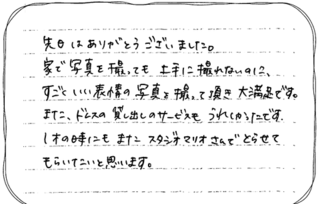 先日はありがとうございました。
家で写真を撮っても上手に撮れないのに、
すごくいい表情の写真を撮って頂き大満足です。
また、ドレスの貸し出しのサービスもうれしかったです。
1才の時にもまたスタジオマリオさんでとらせて
もらいたいと思います。